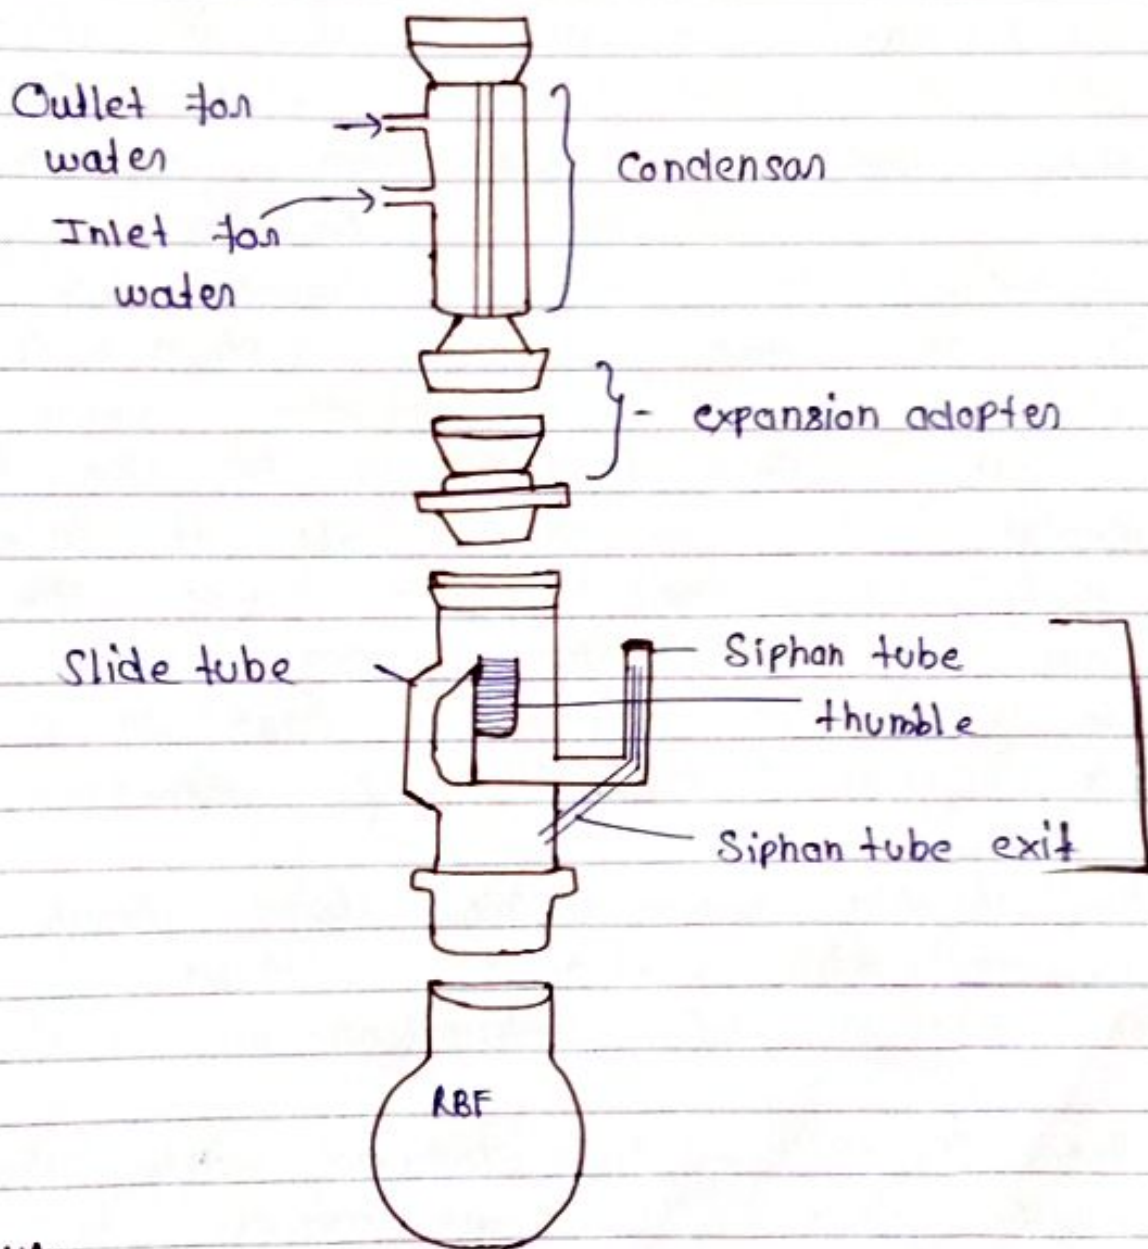 Outlet for
water
Condensar
Inlet for
water
expansion adopter
Slide tube
Siphan tube
thumble
Siphan tube exit
RBF